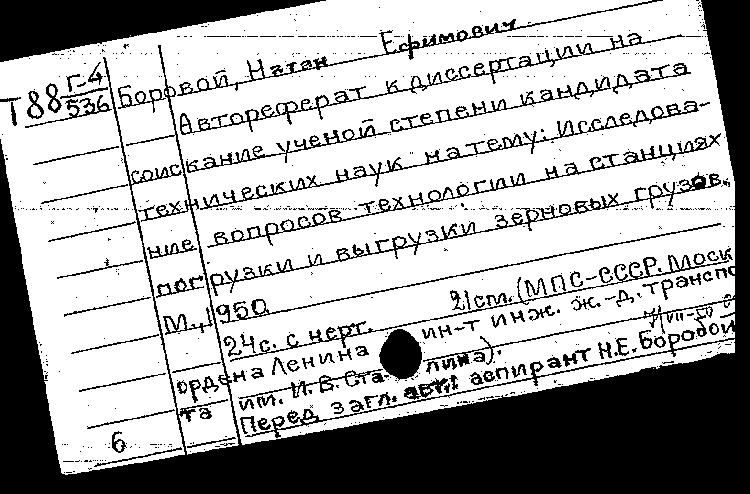 Т88 Г-4/536
Боровой, Натан Ефимович
Автореферат к диссертации на
соискание ученой степени кандидата
технических наук на тему: Исследова-
ние вопросов технологии на станциях
погрузки и выгрузки зерновых грузов.
М., 1950
24с. с черт. 21 см. (МПС-СССР. Моск
ордена Ленина ин-т инж. ж.-д. транспо
та им. И. В. Сталина).
Перед загл. авт.: аспирант Н.Е. Боровой
6